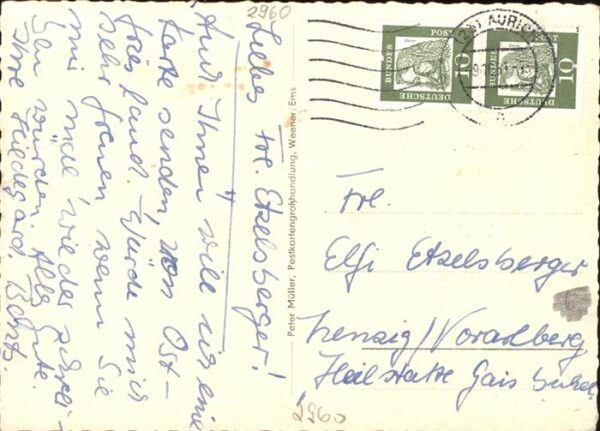 2960
Liebes Frl. Etzelsberger!
Auch Ihnen will ich eine
Karte senden von Ost-
friesland. Würde mich
sehr freuen wenn Sie
mir mal wieder schrei-
ben würden. Alles Gute.
Ihre Hiedegard
Peter Müller, Postkartengroßhandlung, Weener, Ems
DEUTSCHE BUNDESPOST
10
DEUTSCHE BUNDESPOST
10
(23) AURICH
Frl.
Elfi Etzelsberger
/Vorarlberg
Heilstätte Gais
2960